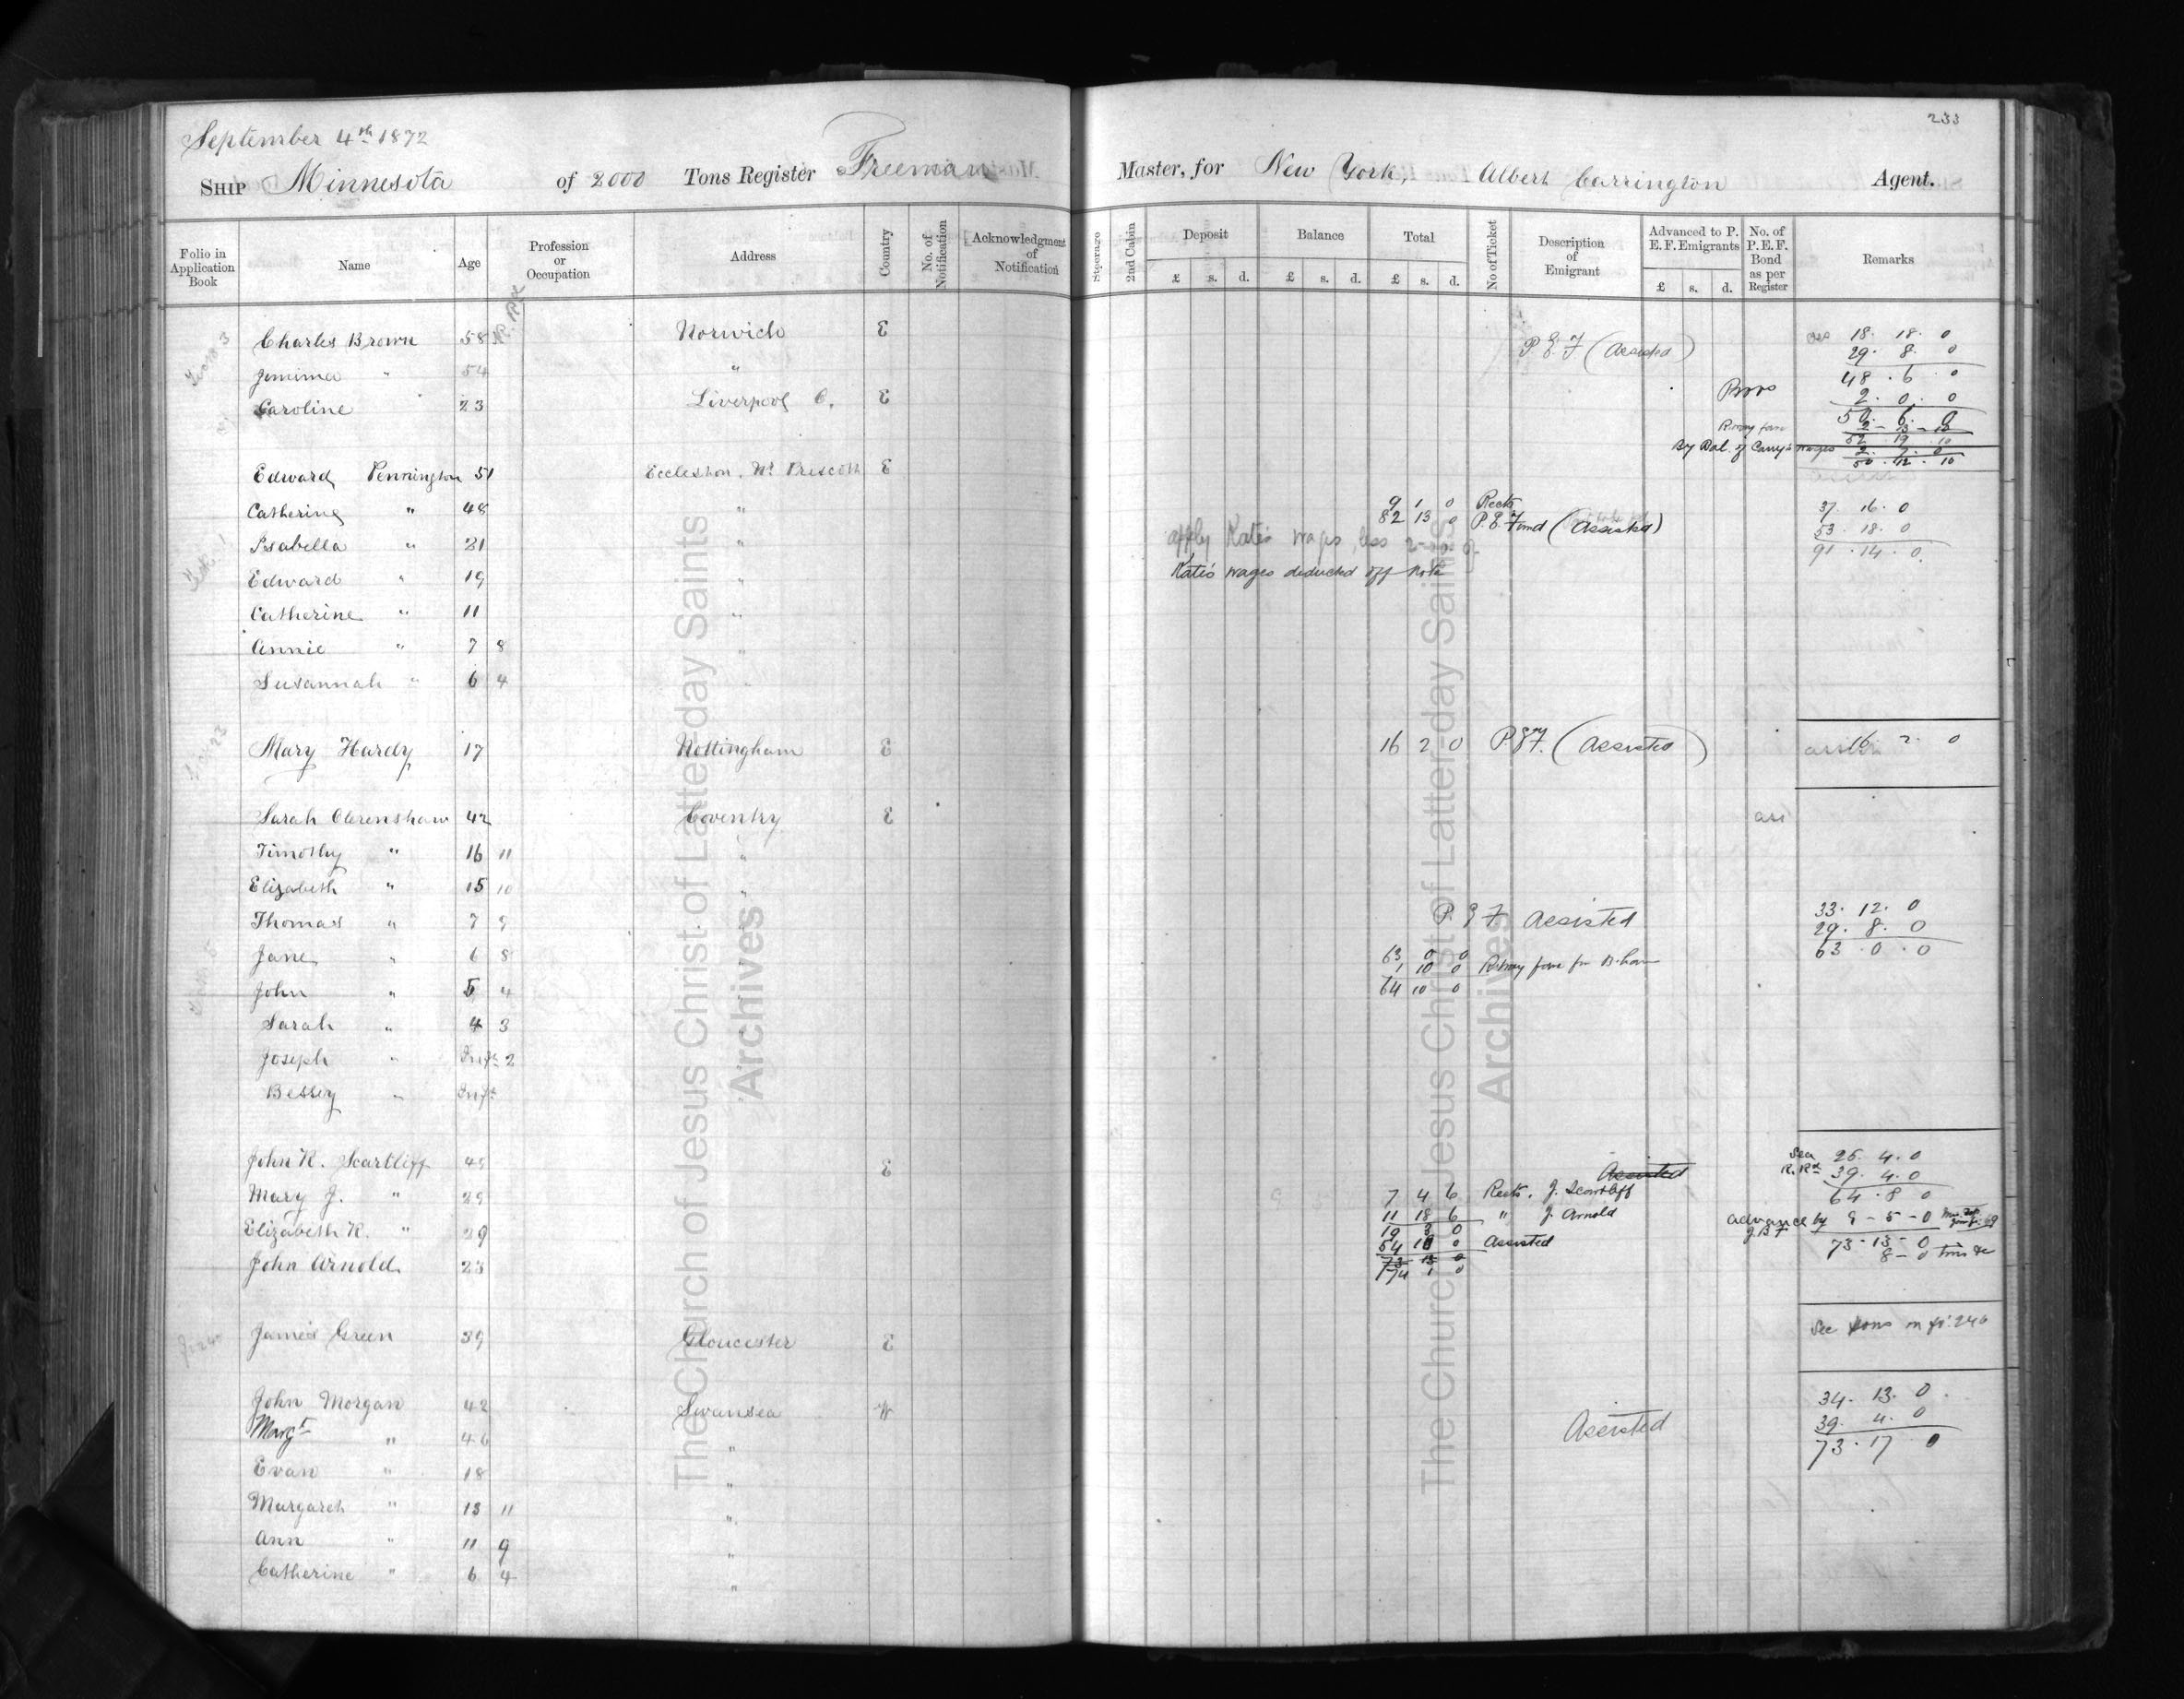 233
September 4th 1872
SHIP Minnesota of 2000 Tons Register Freeman Master, for New York, Albert Carrington Agent.
Folio in Application Book | Name | Age | Profession or Occupation | Address | Country | No. of Notification | Acknowledgment of Notification | Steerage | 2nd Cabin | Deposit £ s. d. | Balance £ s. d. | Total £ s. d. | No of Ticket | Description of Emigrant | Advanced to P. E. F. Emigrants £ s. d. | No. of P. E. F. Bond as per Register | Remarks
Charles Brown 58 Norwich E 18. 18. 0
P.E.F (Assisted) 29. 8. 0
Jemima " 54 " 48. 6. 0
Caroline 23 Liverpool C. E 2. 0. 0
50. 6. 0
By Bal. of Carry's wages
Edward Pennington 51 Eccleston, Nr Prescott E
Catherine " 48 " 9 1 0 Rects 37. 16. 0
82 13 0 P.E. Fund (Assisted) 53. 18. 0
Isabella " 21 " apply Katie's wages, less 91. 14. 0
Edward " 19 " Katie's wages deducted off note
Catherine " 11 "
Annie " 7 8 "
Susannah " 6 4 "
Mary Hardy 17 Nottingham E 16 2 0 P.E.F. (Assisted) 16 2. 0
Sarah Clerenshaw 42 Coventry E
Timothy " 16 11 "
Elizabeth " 15 10 "
Thomas " 7 9 P.E.F Assisted 33. 12. 0
29. 8. 0
Jane " 6 8 63 0 0 63. 0. 0
1 10 0 R.way fare fm B.ham
John " 5 4 64 10 0
Sarah " 4 3
Joseph " Inft 2
Bessey " Inft
John R. Scartliff 45 E Assisted Sea 25. 4. 0
R. Rd 39. 4. 0
Mary J. " 29 7 4 6 Rects. J. Scartliff 64. 8 0
11 18 6 " J. Arnold advance by 9 - 5 - 0
Elizabeth R. " 29 19 3 0 73 - 13 - 0
Assisted 8 - 0
John Arnold 23 74 1 0
James Green 39 Gloucester E See sons on fo. 246
John Morgan 42 Swansea W 34. 13. 0
Margt " 46 " Assisted 39. 4. 0
73. 17 0
Evan " 18 "
Margaret " 13 11 "
Ann " 11 9 "
Catherine " 6 4 "
The Church of Jesus Christ of Latter-day Saints
Archives
The Church of Jesus Christ of Latter-day Saints
Archives